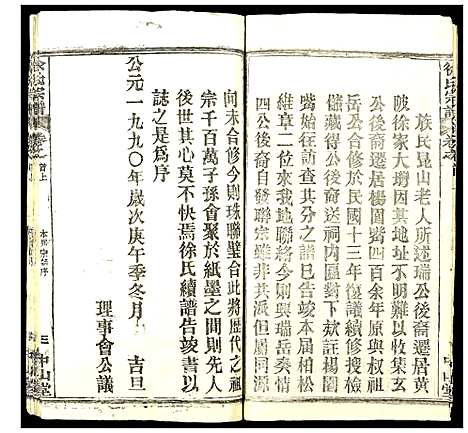 徐氏宗譜
族民昆山老人所述瑞公後裔遷居黃
陂徐家大塆因其地址不明難以收集玄
公後裔遷居楊園嘴四百余年原无續修
岳公合修於民國十三年復續修譜搜檢
儲藏得公後裔送祠内匱對下欵註楊園
嘴始往訪查其分之譜告竣本届柏松
維章二位來我宗會今則與瑞岳英貴
四公後裔自發聯宗雖非共派但屬同源
向未合修今則珠聯璧合此將歷代之祖
宗千百萬子孫會聚於紙墨之間而流傳
後世其心莫不快焉徐氏續譜告竣書以
誌之是為序
公元一九九〇年歲次庚午季冬月 吉旦
理事會公議
徐氏宗譜
卷首上
三
中山堂
中山堂